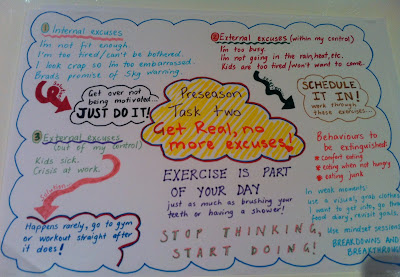 ① Internal excuses
Im not fit enough.
I'm too tired/can't be bothered.
I look crap so I'm too embarrassed.
Brads promise of Sky warning.
Get over not
being motivated...
JUST DO IT!
② External excuses (within my control)
I'm too busy.
Im not going in the rain, heat, etc.
Kids are too tired/won't want to come.
SCHEDULE
IT IN!
work through
these excuses...
Preseason
Task two
Get Real, no
more excuses!
③ External excuses
(out of my control)
Kids sick.
Crisis at work.
Happens rarely, go to gym
or workout straight after
it does!
EXERCISE IS PART
OF YOUR DAY
just as much as brushing your
teeth or having a shower!
STOP THINKING,
START DOING!
Behaviours to
be extinguished:
* comfort eating
* eating when not hungry
* eating junk
In weak moments:
use a visual, grab clothes
I want to get into, go thro
food diary, revisit goals.
Use mindset sessions
BREAKDOWNS AND
BREAKTHROUGH